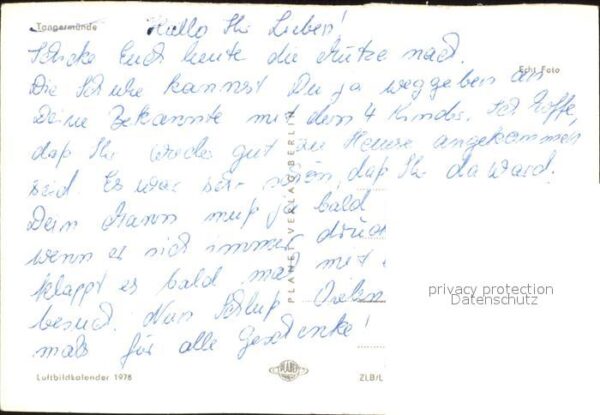 Tangermünde
Hallo Ihr Lieben!
Schicke Euch heute die Mütze nach.
Echt Foto
Die Schuhe kannst Du ja weggeben an
Deine Bekannte mit den 4 Kinds. Ich hoffe,
daß Ihr wieder gut zu Hause angekommen
seid. Es war sehr schön, daß Ihr da ward.
Dein Mann muß ja bald
wenn er sich immer drück
klappt es bald mal mit
besuch. Nun Schluß
mals für alle Geschenke!
PLANET-VERLAG BERLIN
privacy protection
Datenschutz
Luftbildkalender 1978
PLANET
ZLB/L